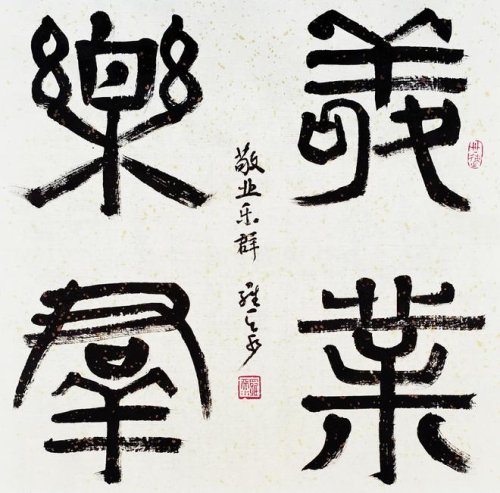 敬業
樂羣
敬业乐群